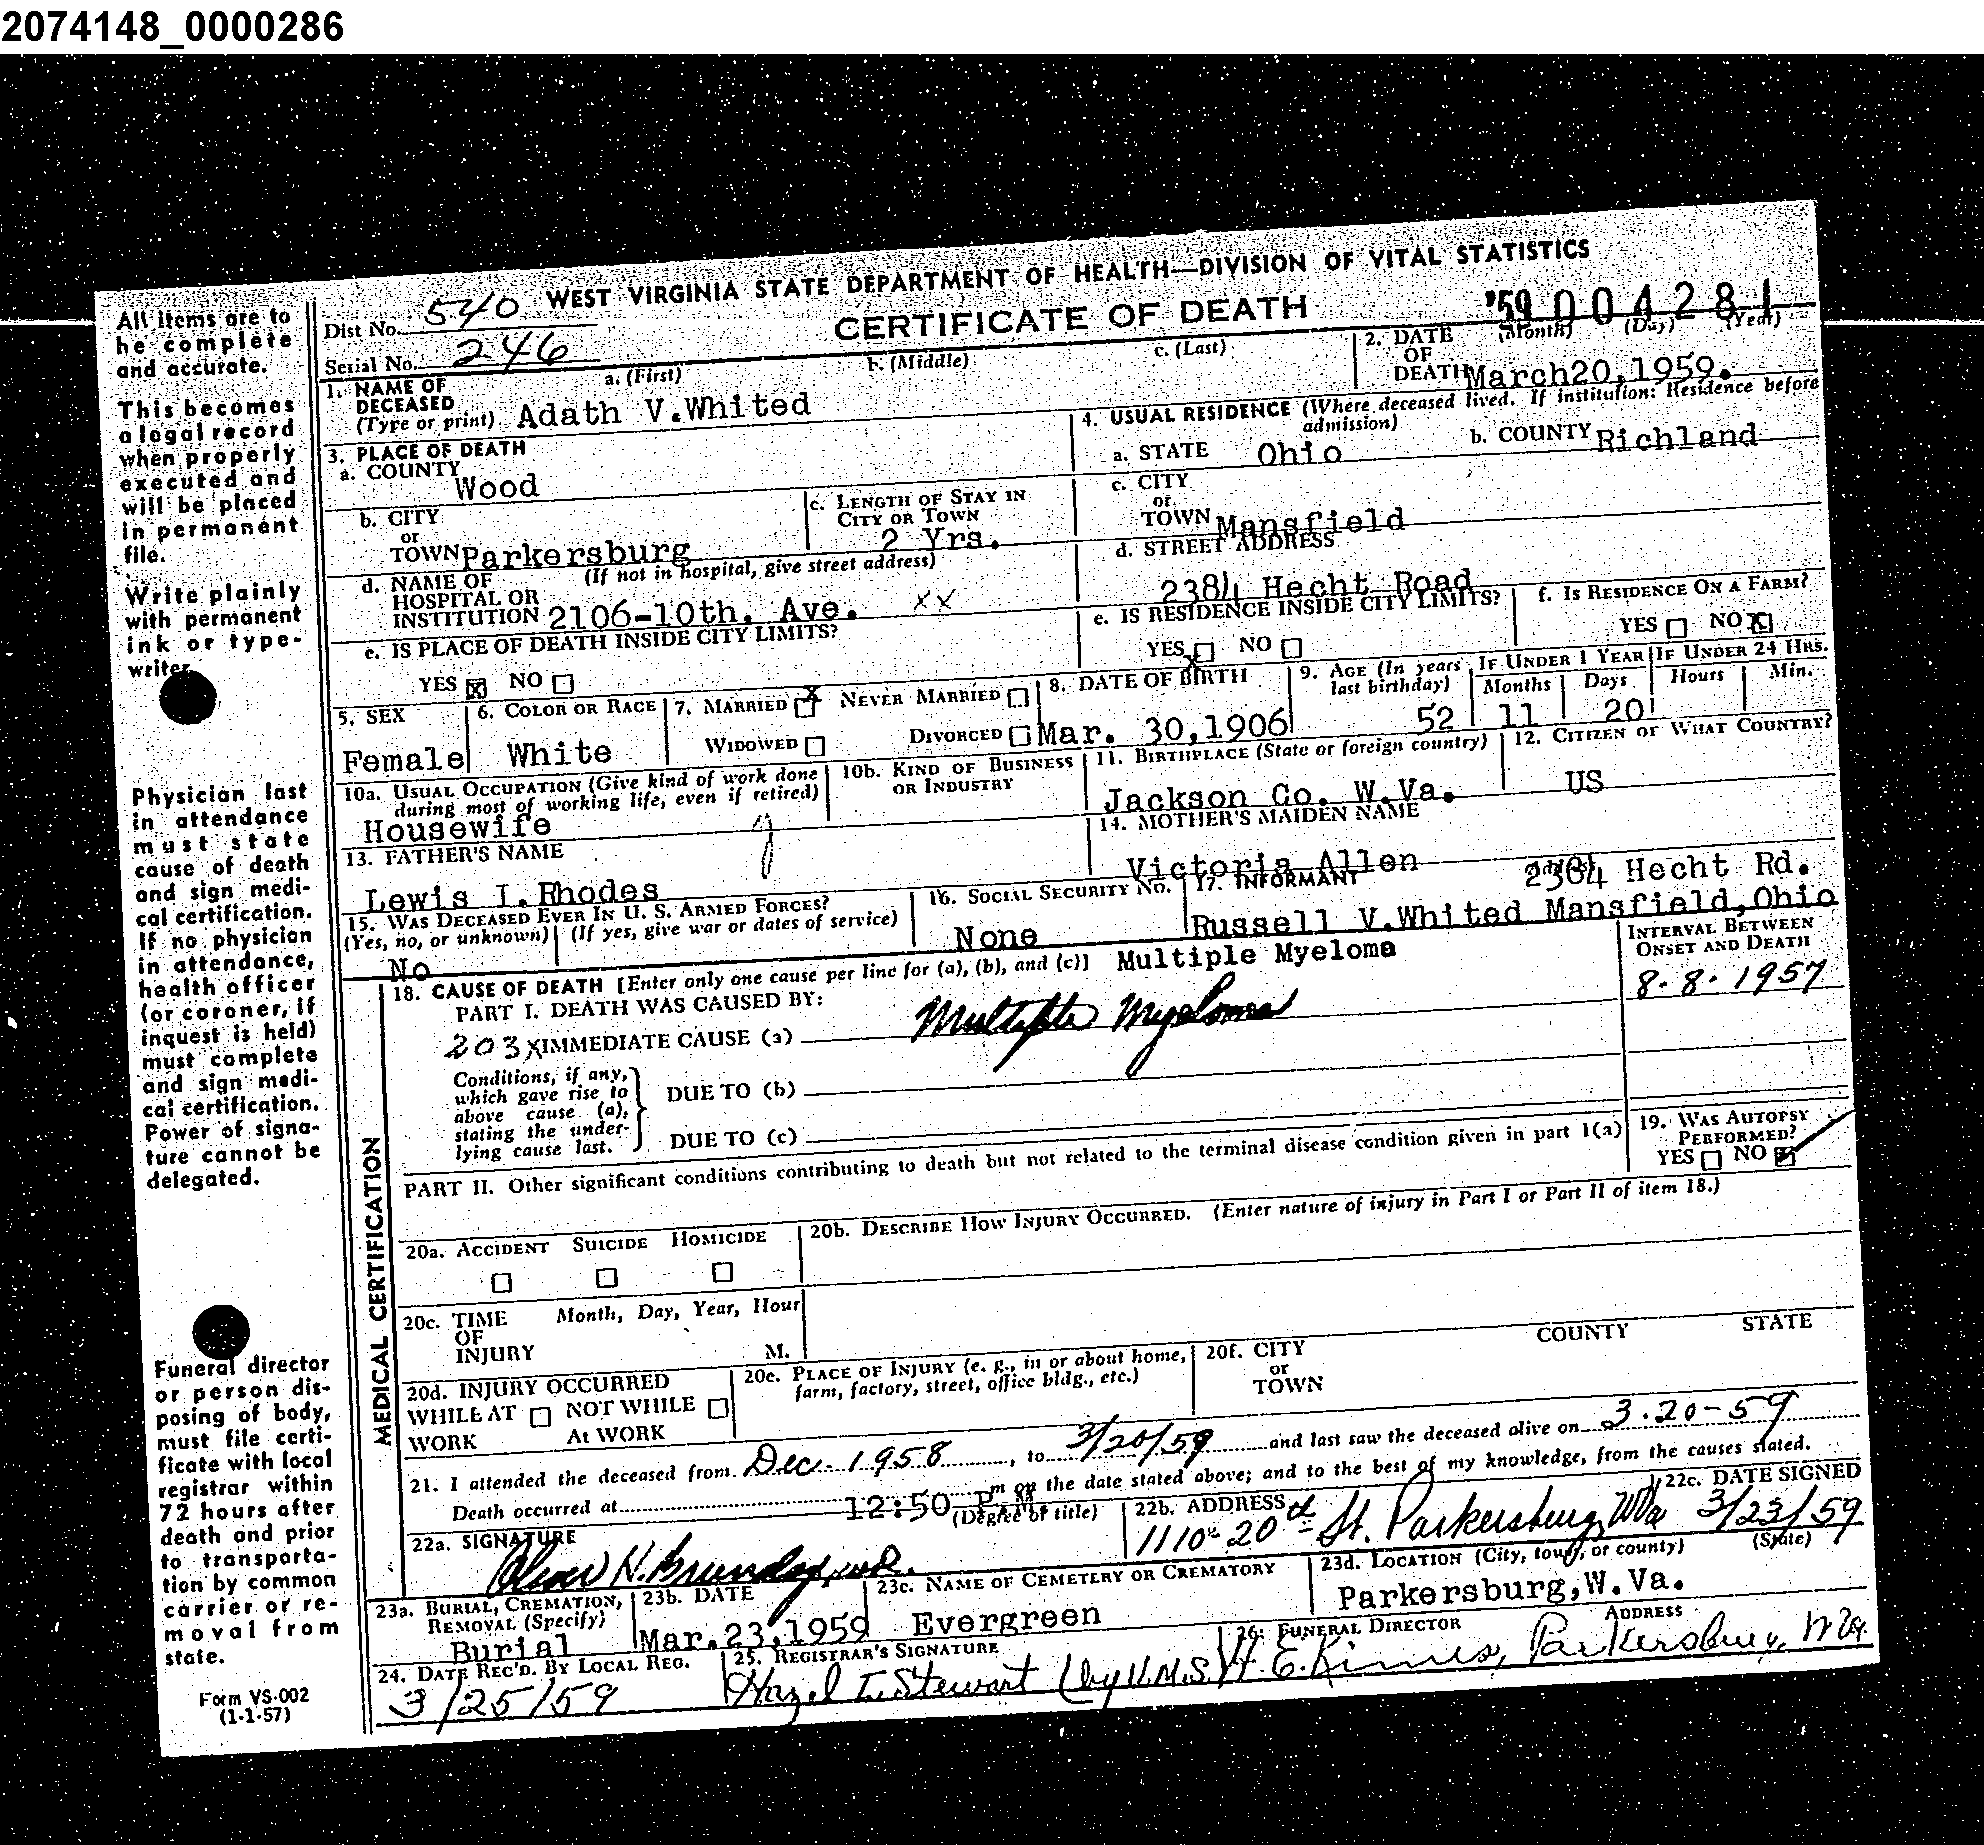 2074148_0000286
All items are to
be complete
and accurate.
This becomes
a legal record
when properly
executed and
will be placed
in permanent
file.
Write plainly
with permanent
ink or type-
writer.
Physician last
in attendance
must state
cause of death
and sign medi-
cal certification.
If no physician
in attendance,
health officer
(or coroner, if
inquest is held)
must complete
and sign medi-
cal certification.
Power of signa-
ture cannot be
delegated.
Funeral director
or person dis-
posing of body,
must file certi-
ficate with local
registrar within
72 hours after
death and prior
to transporta-
tion by common
carrier or re-
moval from
state.
Form VS-002
(1-1-57)
WEST VIRGINIA STATE DEPARTMENT OF HEALTH—DIVISION OF VITAL STATISTICS
Dist No. 540
CERTIFICATE OF DEATH
'59 004281
Serial No. 246
1. NAME OF DECEASED (Type or print) a. (First) b. (Middle) c. (Last)
Adath V.Whited
2. DATE OF DEATH (Month) (Day) (Year)
March20,1959.
3. PLACE OF DEATH
a. COUNTY Wood
b. CITY or TOWN Parkersburg
c. LENGTH OF STAY IN CITY OR TOWN
2 Yrs.
d. NAME OF HOSPITAL OR INSTITUTION (If not in hospital, give street address)
2106-10th. Ave. XX
e. IS PLACE OF DEATH INSIDE CITY LIMITS?
YES X NO
4. USUAL RESIDENCE (Where deceased lived. If institution: Residence before admission)
a. STATE Ohio b. COUNTY Richland
c. CITY or TOWN Mansfield
d. STREET ADDRESS
2384 Hecht Road
e. IS RESIDENCE INSIDE CITY LIMITS?
YES X NO
f. IS RESIDENCE ON A FARM?
YES NO X
5. SEX Female
6. COLOR OR RACE White
7. MARRIED X NEVER MARRIED
WIDOWED DIVORCED
8. DATE OF BIRTH
Mar. 30,1906
9. AGE (In years last birthday) 52
IF UNDER 1 YEAR Months 11 Days 20
IF UNDER 24 HRS. Hours Min.
10a. USUAL OCCUPATION (Give kind of work done during most of working life, even if retired)
Housewife
10b. KIND OF BUSINESS OR INDUSTRY
11. BIRTHPLACE (State or foreign country)
Jackson Co. W.Va.
12. CITIZEN OF WHAT COUNTRY?
US
13. FATHER'S NAME
Lewis I.Rhodes
14. MOTHER'S MAIDEN NAME
Victoria Allen
15. WAS DECEASED EVER IN U. S. ARMED FORCES?
(Yes, no, or unknown) (If yes, give war or dates of service)
No
16. SOCIAL SECURITY NO.
None
17. INFORMANT 2384 Hecht Rd.
Russell V.Whited Mansfield,Ohio
18. CAUSE OF DEATH [Enter only one cause per line for (a), (b), and (c)] Multiple Myeloma
INTERVAL BETWEEN ONSET AND DEATH
8-8-1957
PART I. DEATH WAS CAUSED BY:
203X IMMEDIATE CAUSE (a) Multiple Myeloma
Conditions, if any, which gave rise to above cause (a), stating the under-lying cause last.
DUE TO (b)
DUE TO (c)
PART II. Other significant conditions contributing to death but not related to the terminal disease condition given in part I(a)
19. WAS AUTOPSY PERFORMED?
YES NO
MEDICAL CERTIFICATION
20a. ACCIDENT SUICIDE HOMICIDE
20b. DESCRIBE HOW INJURY OCCURRED. (Enter nature of injury in Part I or Part II of item 18.)
20c. TIME OF INJURY Month, Day, Year, Hour M.
20d. INJURY OCCURRED
WHILE AT WORK NOT WHILE At WORK
20e. PLACE OF INJURY (e. g., in or about home, farm, factory, street, office bldg., etc.)
20f. CITY or TOWN COUNTY STATE
21. I attended the deceased from Dec. 1958, to 3/20/59 and last saw the deceased alive on 3-20-59
Death occurred at 12:50 P.M. m on the date stated above; and to the best of my knowledge, from the causes stated.
22a. SIGNATURE (Degree or title)
22b. ADDRESS
1110-20th St. Parkersburg, WVa
22c. DATE SIGNED
3/23/59
23a. BURIAL, CREMATION, REMOVAL (Specify)
Burial
23b. DATE
Mar.23,1959
23c. NAME OF CEMETERY OR CREMATORY
Evergreen
23d. LOCATION (City, town, or county) (State)
Parkersburg,W.Va.
24. DATE REC'D. BY LOCAL REG.
3/25/59
25. REGISTRAR'S SIGNATURE
Hazel I. Stewart (by V.M.S.)
26. FUNERAL DIRECTOR ADDRESS
H.E. Kimes, Parkersburg, W Va.